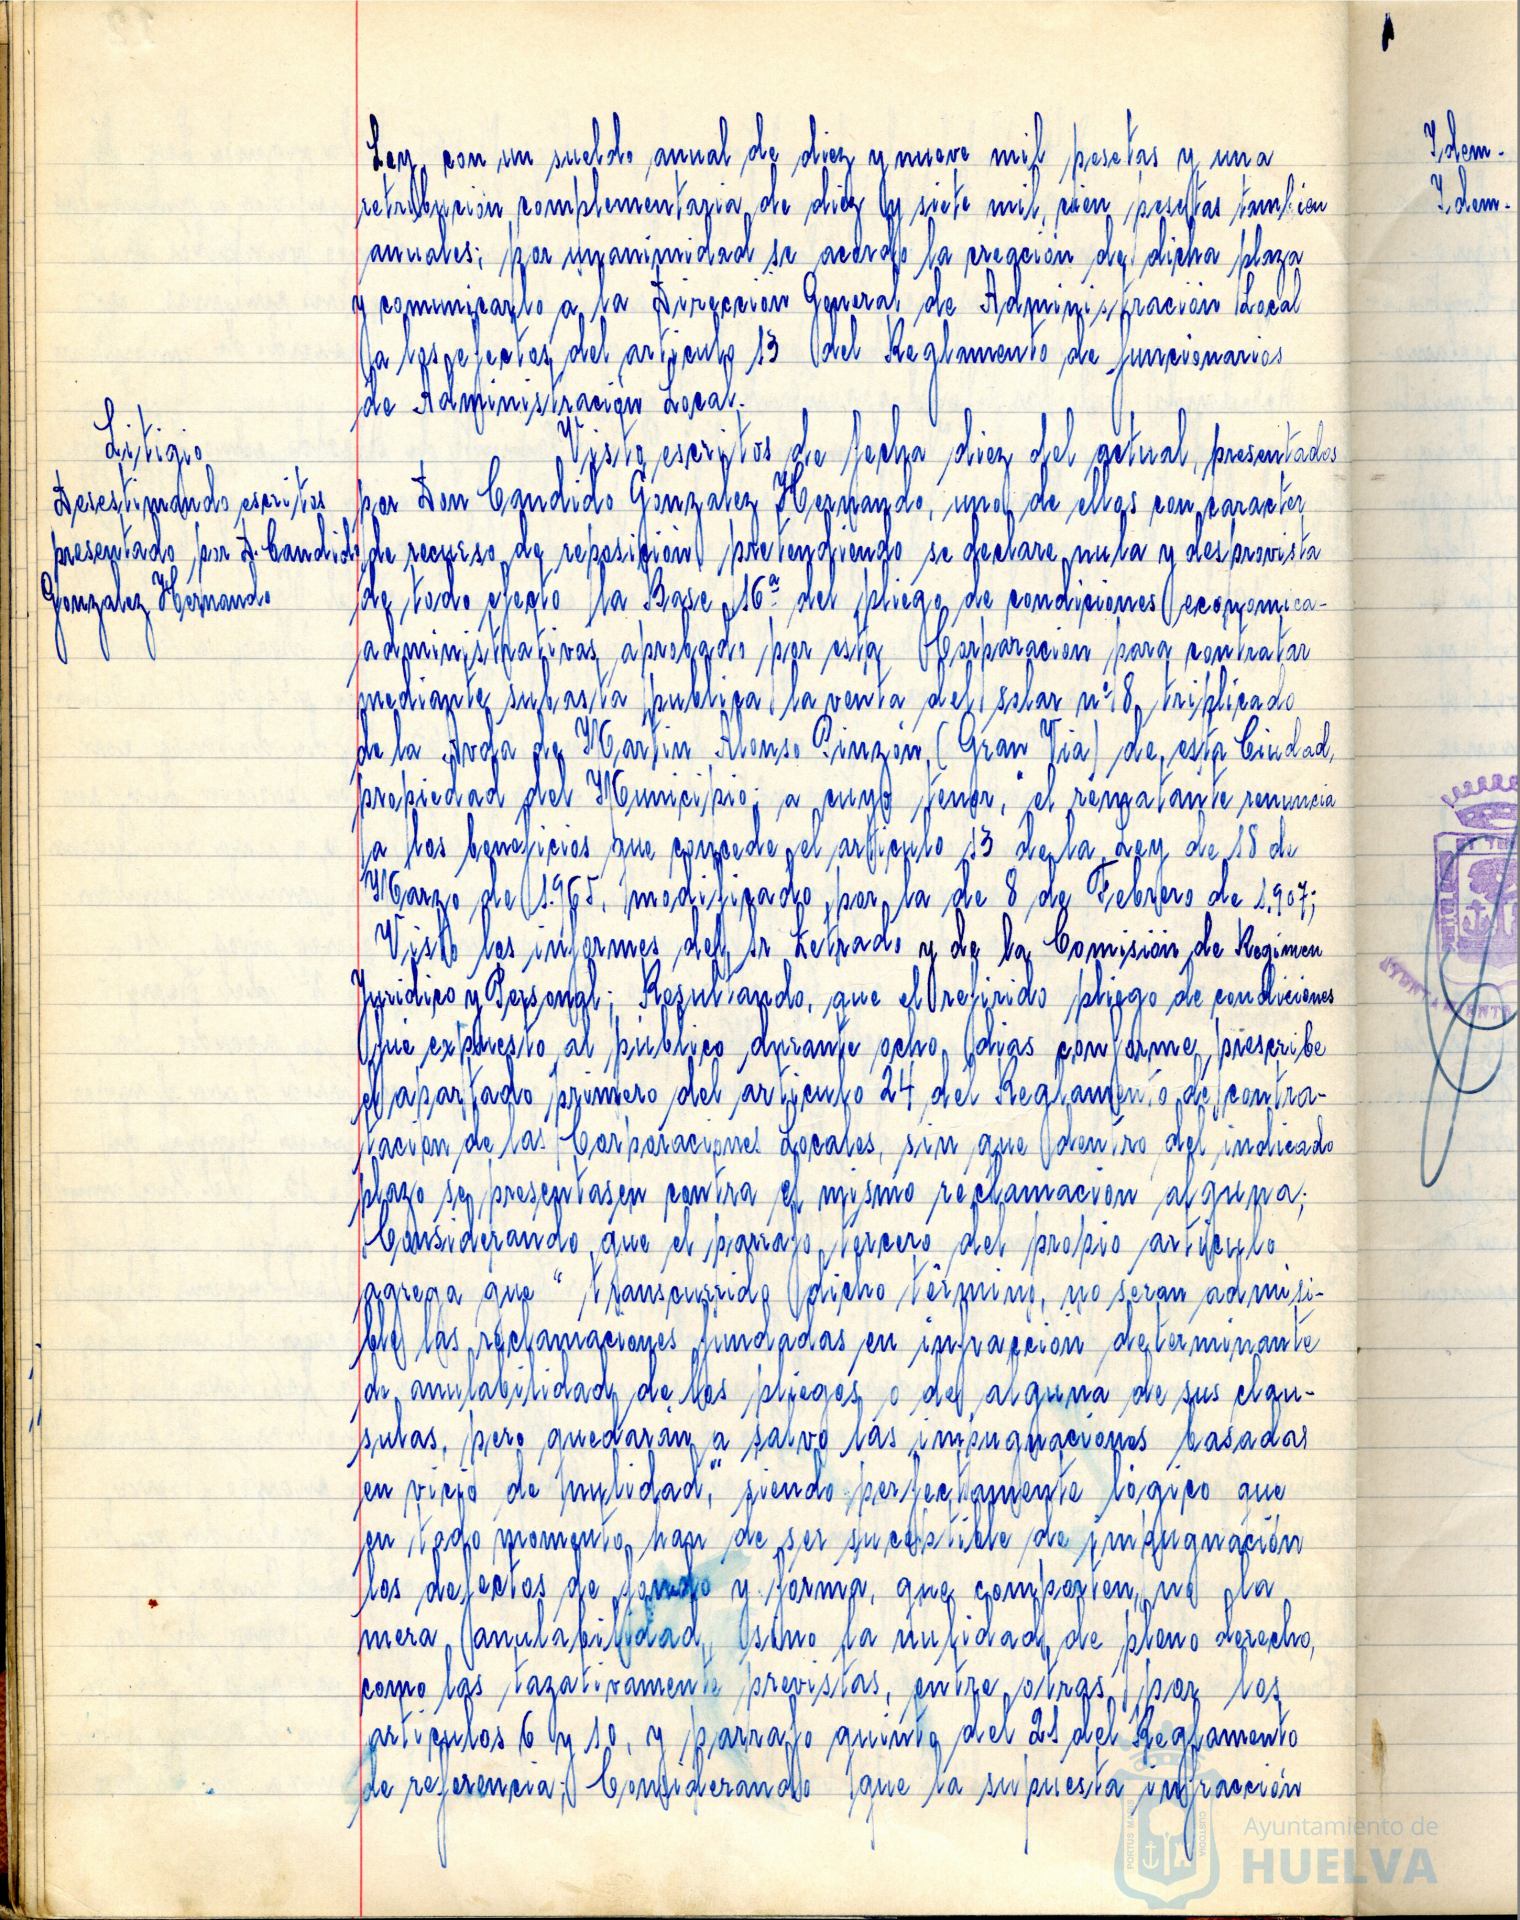 Ley, con un sueldo anual de diez y nueve mil pesetas y una
retribucion complementaria de diez y siete mil, cien pesetas tambien
anuales; por unanimidad se acordo la creación de dicha plaza
y comunicarlo a la Dirección General de Administración Local
a los efectos del articulo 13 del Reglamento de funcionarios
de Administración Local.
Litigio
Desestimando escritos
presentado por D. Candido
Gonzalez Hernando
Visto escritos de fecha diez del actual, presentados
por Don Candido Gonzalez Hernando, uno de ellos con caracter
de recurso de reposición pretendiendo se declare nula y desprovista
de todo efecto la Base 16ª del pliego de condiciones economica-
administrativas aprobado por esta Corporacion para contratar
mediante subasta publica la venta del solar nº 8 triplicado
de la Avda de Martin Alonso Pinzón (Gran Via) de esta Ciudad,
propiedad del Municipio; a cuyo tenor, "el rematante renuncia
a los beneficios que concede el articulo 13 de la Ley de 18 de
Marzo de 1.965, modificado por la de 8 de Febrero de 1.907;
Visto los informes del Sr Letrado y de la Comisión de Regimen
Juridico y Personal; Resultando, que el referido pliego de condiciones
fué expuesto al público durante ocho dias conforme prescribe
el apartado primero del articulo 24 del Reglamento de contra-
tacion de las Corporaciones Locales, sin que dentro del indicado
plazo se presentasen contra el mismo reclamacion alguna;
Considerando que el parrafo tercero del propio articulo
agrega que "transcurrido dicho término, no seran admisi-
ble las reclamaciones fundadas en infracción determinante
de anulabilidad de los pliegos o de alguna de sus clau-
sulas, pero quedarán a salvo las impugnaciones basadas
en vicio de nulidad," siendo perfectamente lógico que
en todo momento han de ser suceptible de impugnación
los defectos de fondo y forma, que comporten, no la
mera anulabilidad, sino la nulidad de pleno derecho,
como las tazativamente previstas, entre otras por los
articulos 6 y 10, y parrafo quinto del 21 del Reglamento
de referencia; Considerando que la supuesta infracción
Idem.
Idem.
Ayuntamiento de
HUELVA